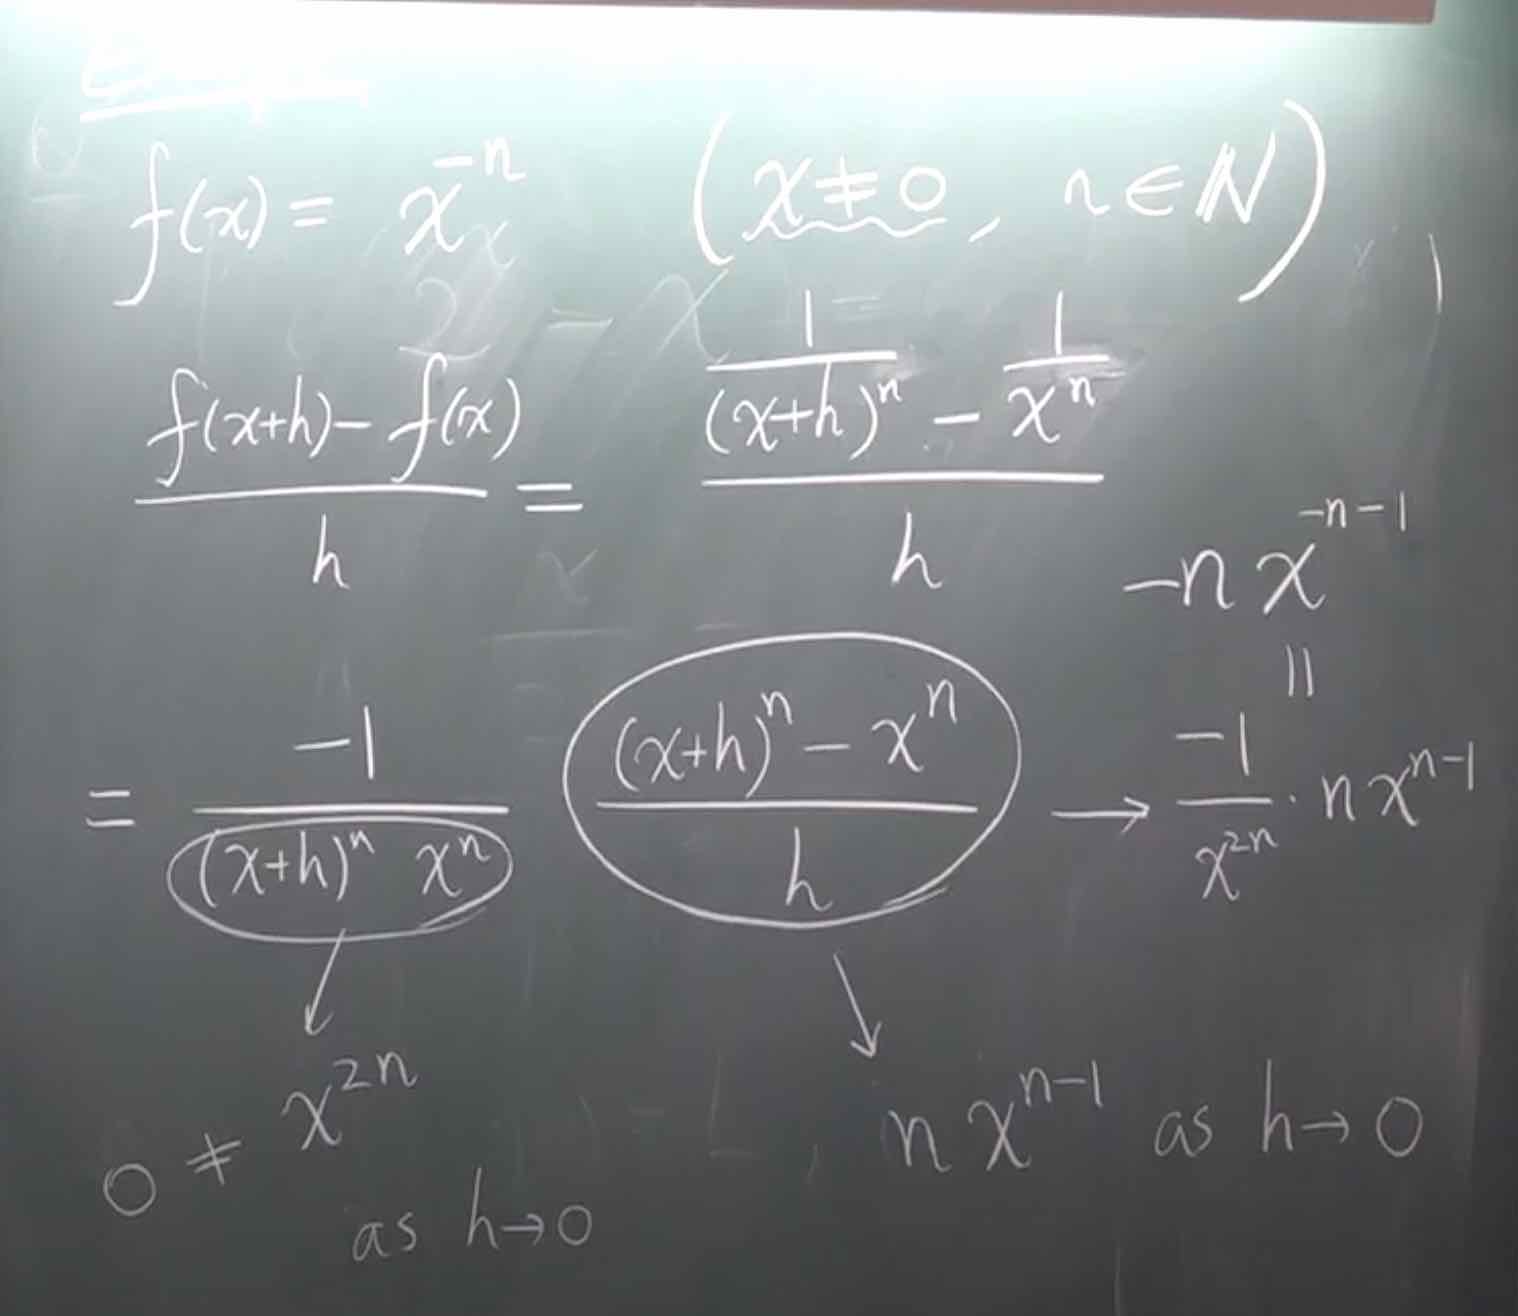 f(x) = x^{-n} (x ≠ 0, n ∈ ℕ)
\frac{f(x+h) - f(x)}{h} = \frac{\frac{1}{(x+h)^n} - \frac{1}{x^n}}{h}
-n x^{-n-1}
||
= \frac{-1}{(x+h)^n x^n} \frac{(x+h)^n - x^n}{h} → \frac{-1}{x^{2n}} · n x^{n-1}
↓ ↓
0 ≠ x^{2n} n x^{n-1} as h→0
as h→0